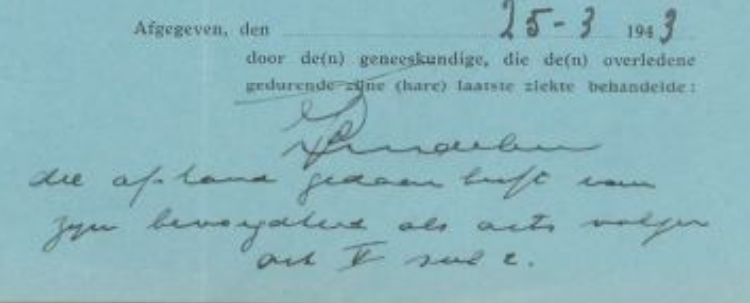 Afgegeven, den 25-3 1943
door de(n) geneeskundige, die de(n) overledene
gedurende zijne (hare) laatste ziekte behandelde:
die afstand gedaan heeft van
zijn bevoegdheid als arts volgens
art V sub 2.